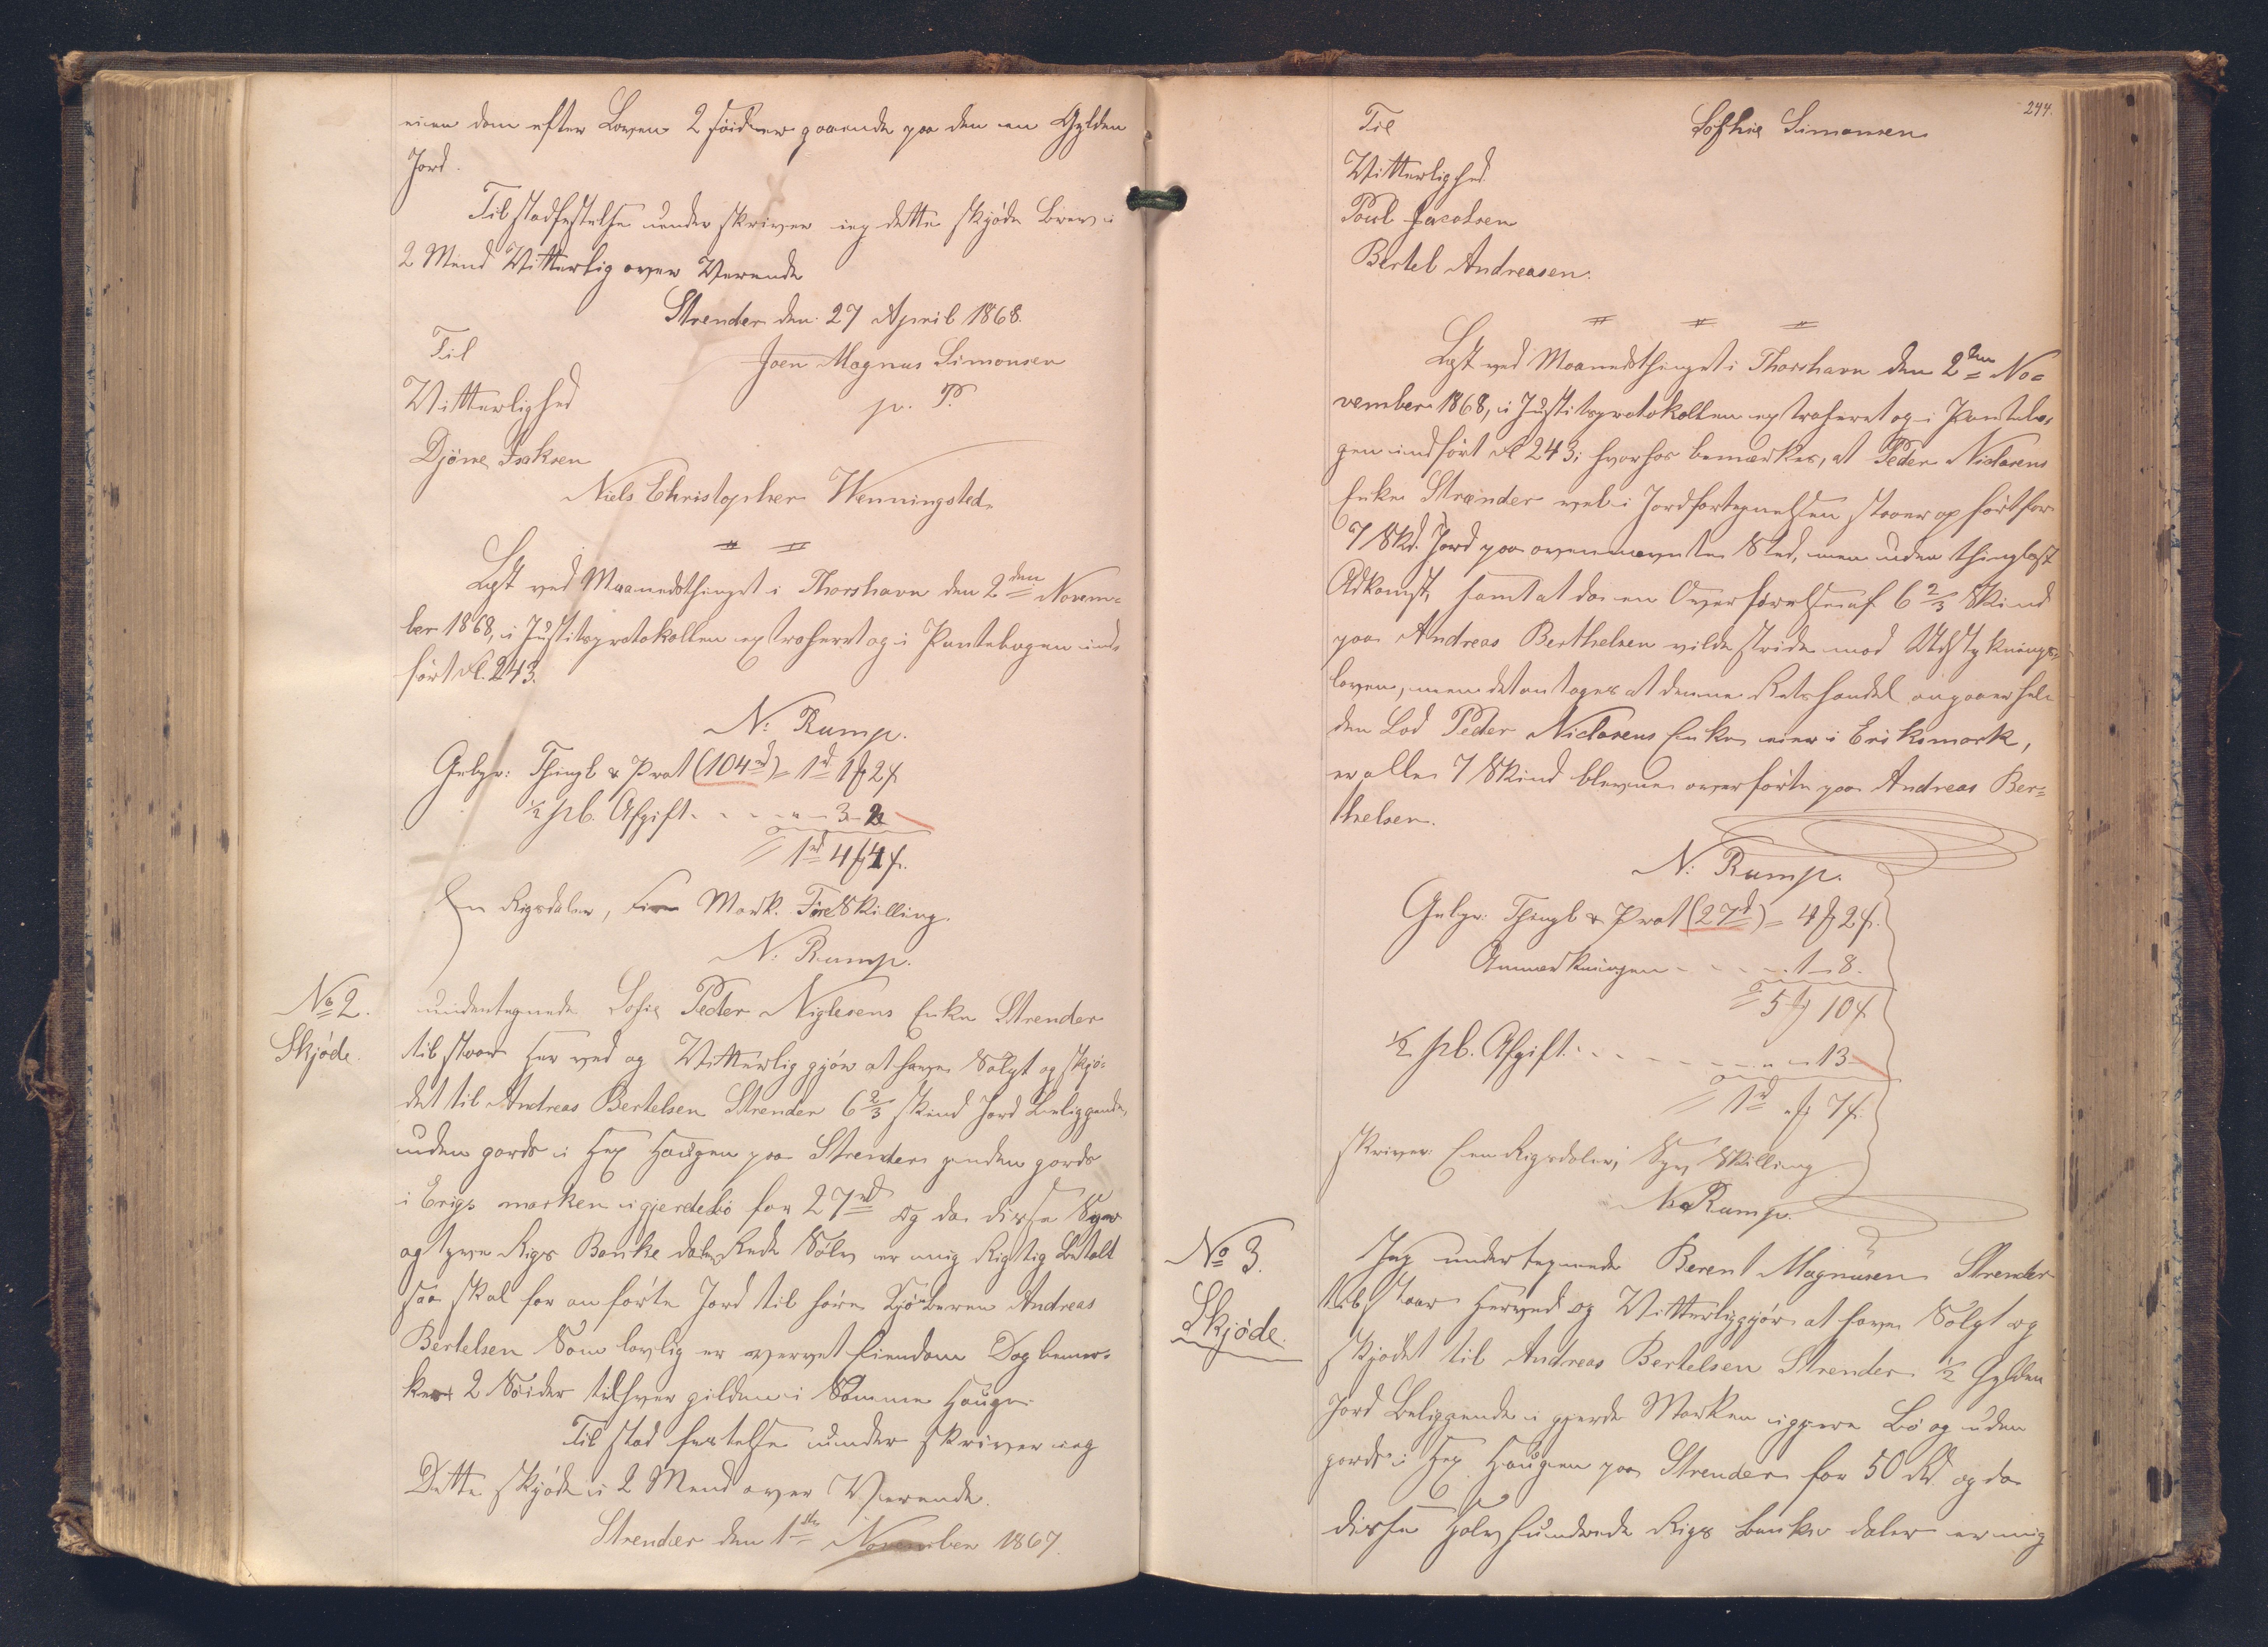 eien dom efter Loven 2 Søider gaaende paa den en Gylden
Jord.
Til stadfestelse under skriver ieg dette skjøde Brev i
2 Mend Vitterlig over Verende
Strender den 27 April 1868.
Til
Joen Magnus Simonsen
Vitterlighed
p. P.
Djóne Isaksen
Niels Christopher Wenningsted
Læst ved Maanedsthinget i Thorshavn den 2den Novem-
ber 1868, i Justitsprotokollen extraheret og i Pantebogen ind-
ført fol. 243.
N: Rump.
Gebyr: Thingl & Prot (104rd) = 1rd 1 mk 2 s.
1/2 pCt. Afgift . . . - " - 3 - 2
1rd 4 mk 4 s.
En Rigsdaler, Fire Mark. Fire Skilling.
N: Rump.
No 2.
Skjøde.
undertegnede Sofie Peder Niglesens Enke Strender
til staar Her ved og Vitterlig gjør at have Solgt og skjø-
det til Andreas Bertelsen Strender 6 2/3 skind Jord Beliggende,
uden gards i Hey Haugen paa Strender inden gards
i Erigs marken i gjerdebø for 27rd og da disse Syv
og tyve Rigs Banke daler Rede Sølv er mig Rigtig Betalt
saa skal for an førte Jord til høre Kjøberen Andreas
Bertelsen Som lovlig er vervet Eiendom Dog bemer-
kes 2 Søider til hver gilden i Samme Hauge.
Til stad festelse under skriver ieg
Dette skjøde i 2 Mend over Verende.
Strender den 1ste November 1867.
244.
Til
Sofhie Simonsen
Vitterlighed
Poul Jacobsen
Bertel Andreasen.
Læst ved Maanedsthinget i Thorshavn den 2den No-
vember 1868, i Justitsprotokollen extraheret og i Pantebo-
gen indført fol 243; hvorhos bemærkes, at Peder Niclasens
Enke Strænder vel i Jordfortegnelsen staaer opført for
7 Skd. Jord paa ovennævnte Sted, men uden thinglæst
Adkomst, samt at da en Overførelse af 6 2/3 Skind
paa Andreas Berthelsen vilde stride mod Udstyknings-
loven, men det antages at denne Retshandel angaaer hele
den Lod Peder Niclasens Enke eier i Eriksmark,
er alle 7 Skind blevne overførte paa Andreas Ber-
thelsen.
N: Rump.
Gebyr: Thingl & Prot (27rd) = 4 mk 2 s.
Anmærkningen - - - 1 - 8.
5 mk 10 s
1/2 pCt. Afgift . - - - - " - 13
1rd " mk 7 s.
skriver Een Rigsdaler, Syv Skilling
N: Rump.
No 3.
Skjøde.
Jeg undertegnede Berent Magnusen Strender
til staar Herved og Vitterliggjør at have Solgt og
skjødet til Andreas Bertelsen Strender 1/2 Gylden
Jord Beliggende i gjerde Marken i gjere Bø og uden
gards i Hey Haugen paa Strender for 50 Rd og da
disse Halv hundrede Rigs banke daler er mig